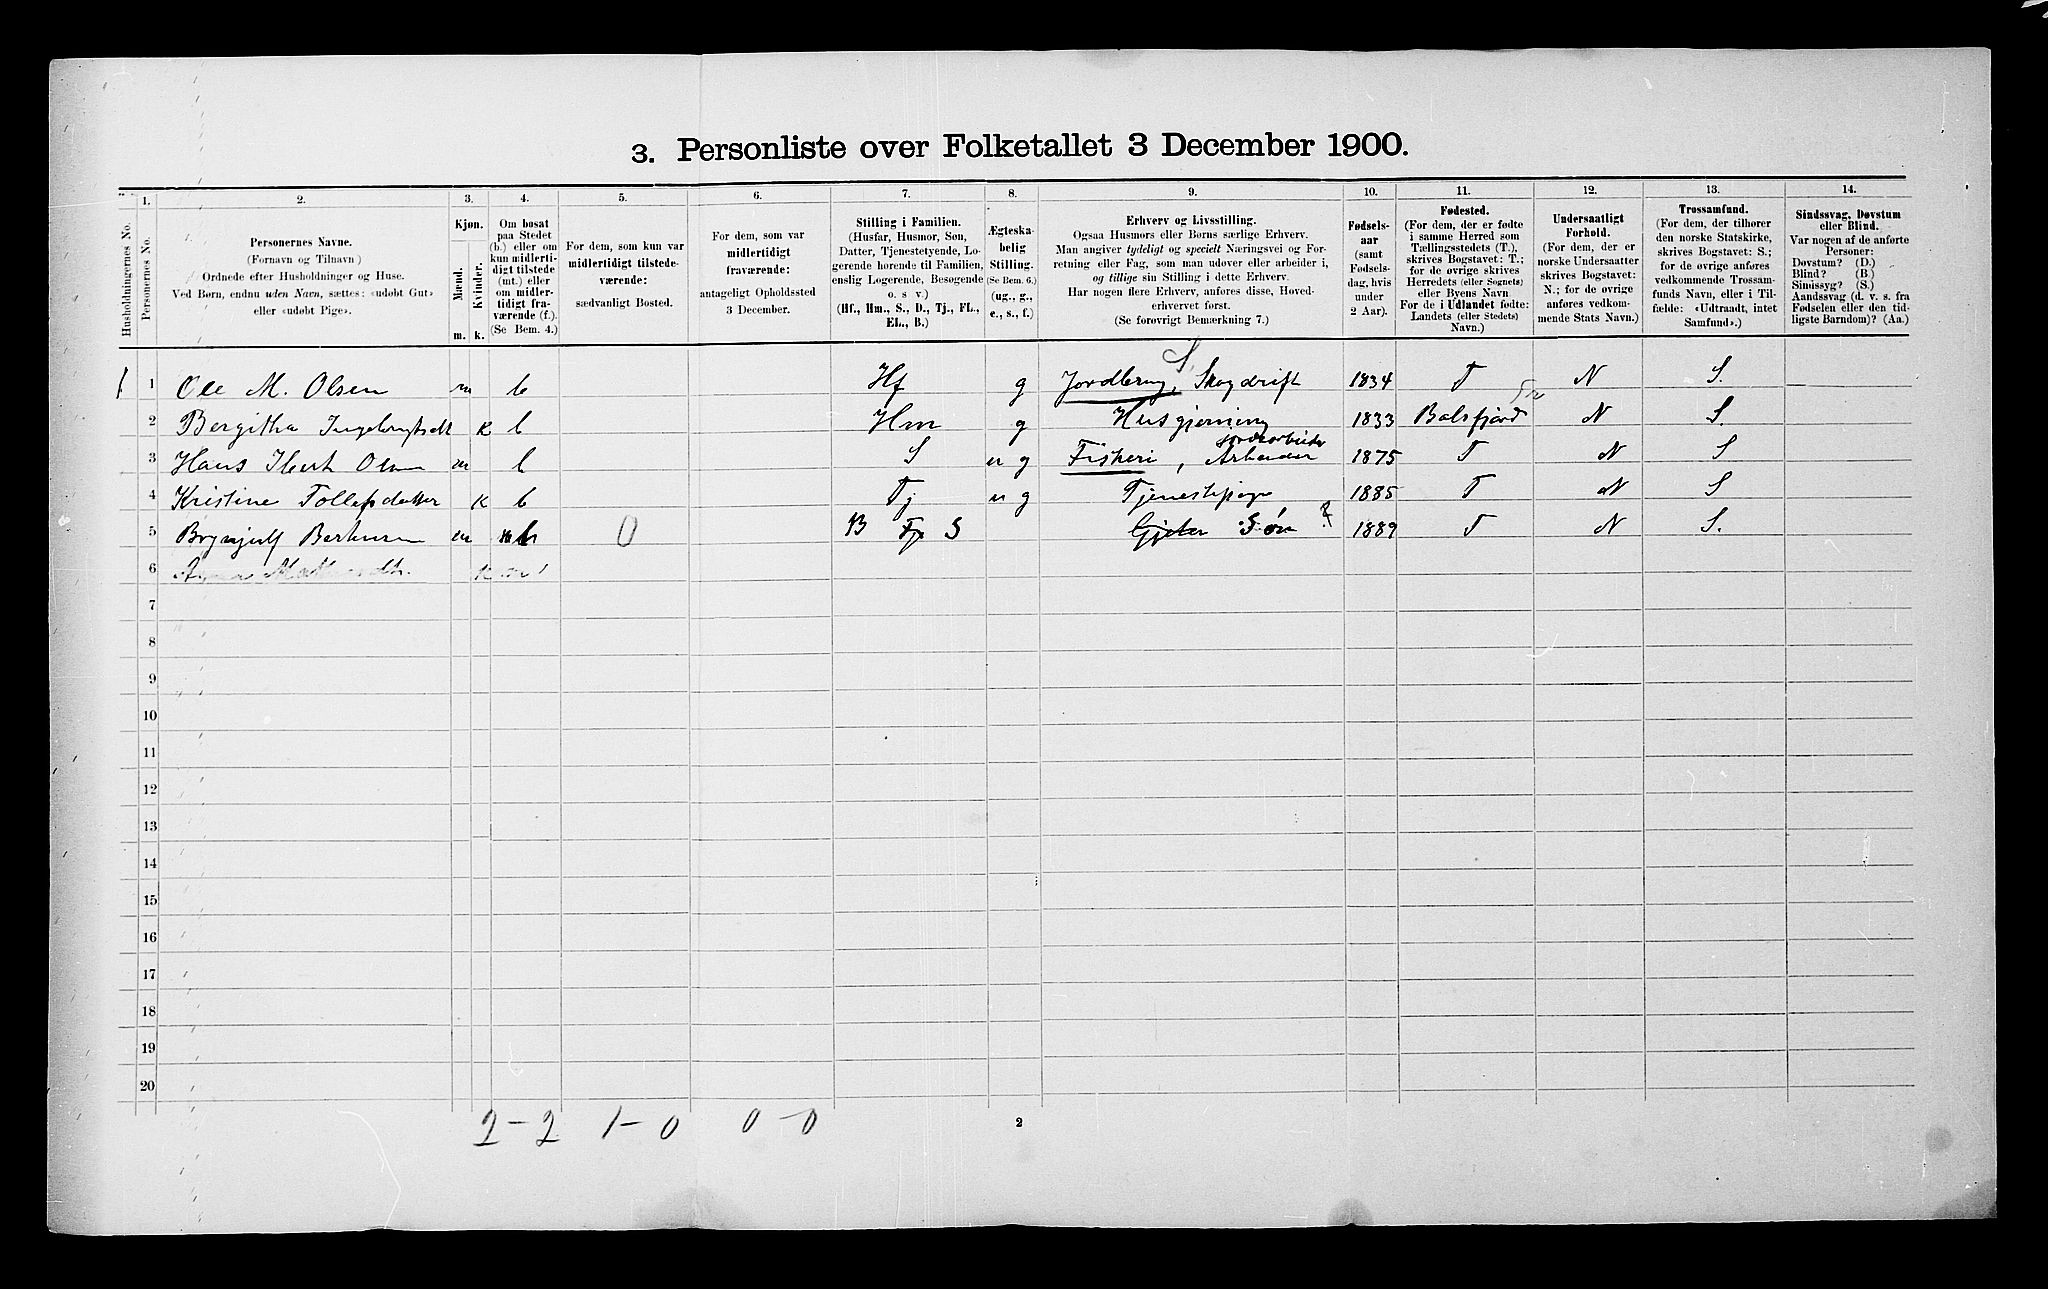 3. Personliste over Folketallet 3 December 1900.
1. 2. 3. 4. 5. 6. 7. 8. 9. 10. 11. 12. 13. 14.
Husholdningernes No.
Personernes No.
Personernes Navne.
(Fornavn og Tilnavn)
Ordnede efter Husholdninger og Huse.
Ved Børn, endnu uden Navn, sættes: «udøbt Gut»
eller «udøbt Pige».
Kjøn.
Mænd.
Kvinder.
m. k.
Om bosat
paa Stedet
(b.) eller om
kun midlerti-
digt tilstede
(mt.) eller
om midler-
tidigt fra-
værende (f.).
(Se Bem. 4.)
For dem, som kun var
midlertidigt tilstede-
værende:
sædvanligt Bosted.
For dem, som var
midlertidigt
fraværende:
antageligt Opholdssted
3 December.
Stilling i Familien.
(Husfar, Husmor, Søn,
Datter, Tjenestetyende, Lo-
gerende hørende til Familien,
enslig Logerende, Besøgende
o. s v.)
(Hf., Hm., S., D., Tj., FL.,
EL., B.)
Ægteska-
belig
Stilling.
(Se Bem. 6.)
(ug., g.,
e., s., f.)
Erhverv og Livsstilling.
Ogsaa Husmors eller Børns særlige Erhverv.
Man angiver tydeligt og specielt Næringsvei og For-
retning eller Fag, som man udøver eller arbeider i,
og tillige sin Stilling i dette Erhverv.
Har nogen flere Erhverv, anføres disse, Hoved-
erhvervet først.
(Se forøvrigt Bemærkning 7.)
Fødsels-
aar
(samt
Fødsels-
dag, hvis
under
2 Aar).
Fødested.
(For dem, der er fødte
i samme Herred som
Tællingsstedets (T.),
skrives Bogstavet: T.;
for de øvrige skrives
Herredets (eller Sognets)
eller Byens Navn
For de i Udlandet fødte:
Landets (eller Stedets)
Navn.)
Undersaatligt
Forhold.
(For dem, der er
norske Undersaatter
skrives Bogstavet:
N.; for de øvrige
anføres vedkom-
mende Stats Navn.)
Trossamfund.
(For dem, der tilhører
den norske Statskirke,
skrives Bogstavet: S.;
for de øvrige anføres
vedkommende Trossam-
funds Navn, eller i Til-
fælde: «Udtraadt, intet
Samfund».)
Sindssvag, Døvstum
eller Blind.
Var nogen af de anførte
Personer:
Døvstum? (D.)
Blind? (B.)
Sinnssyg? (S.)
Aandssvag (d. v. s. fra
Fødselen eller den tid-
ligste Barndom)? (Aa.)
1 Ole M. Olsen m b Hf g Jordbrug, Skogdrift 1834 T N S.
2 Bergitha Ingebrigtsdt k b Hm g Husgjerning 1833 Balsfjord N S.
3 Hans Olsen m b S ug Fiskeri, Arbeider 1875 T N S
4 Kristine Tollefsdatter k b Tj ug Tjenestepige 1885 T N S
5 m 0 B S Gjeter Søn 1889 T N S.
6 k
7
8
9
10
11
12
13
14
15
16
17
18
19
20
2-2 1-0 0-0
2